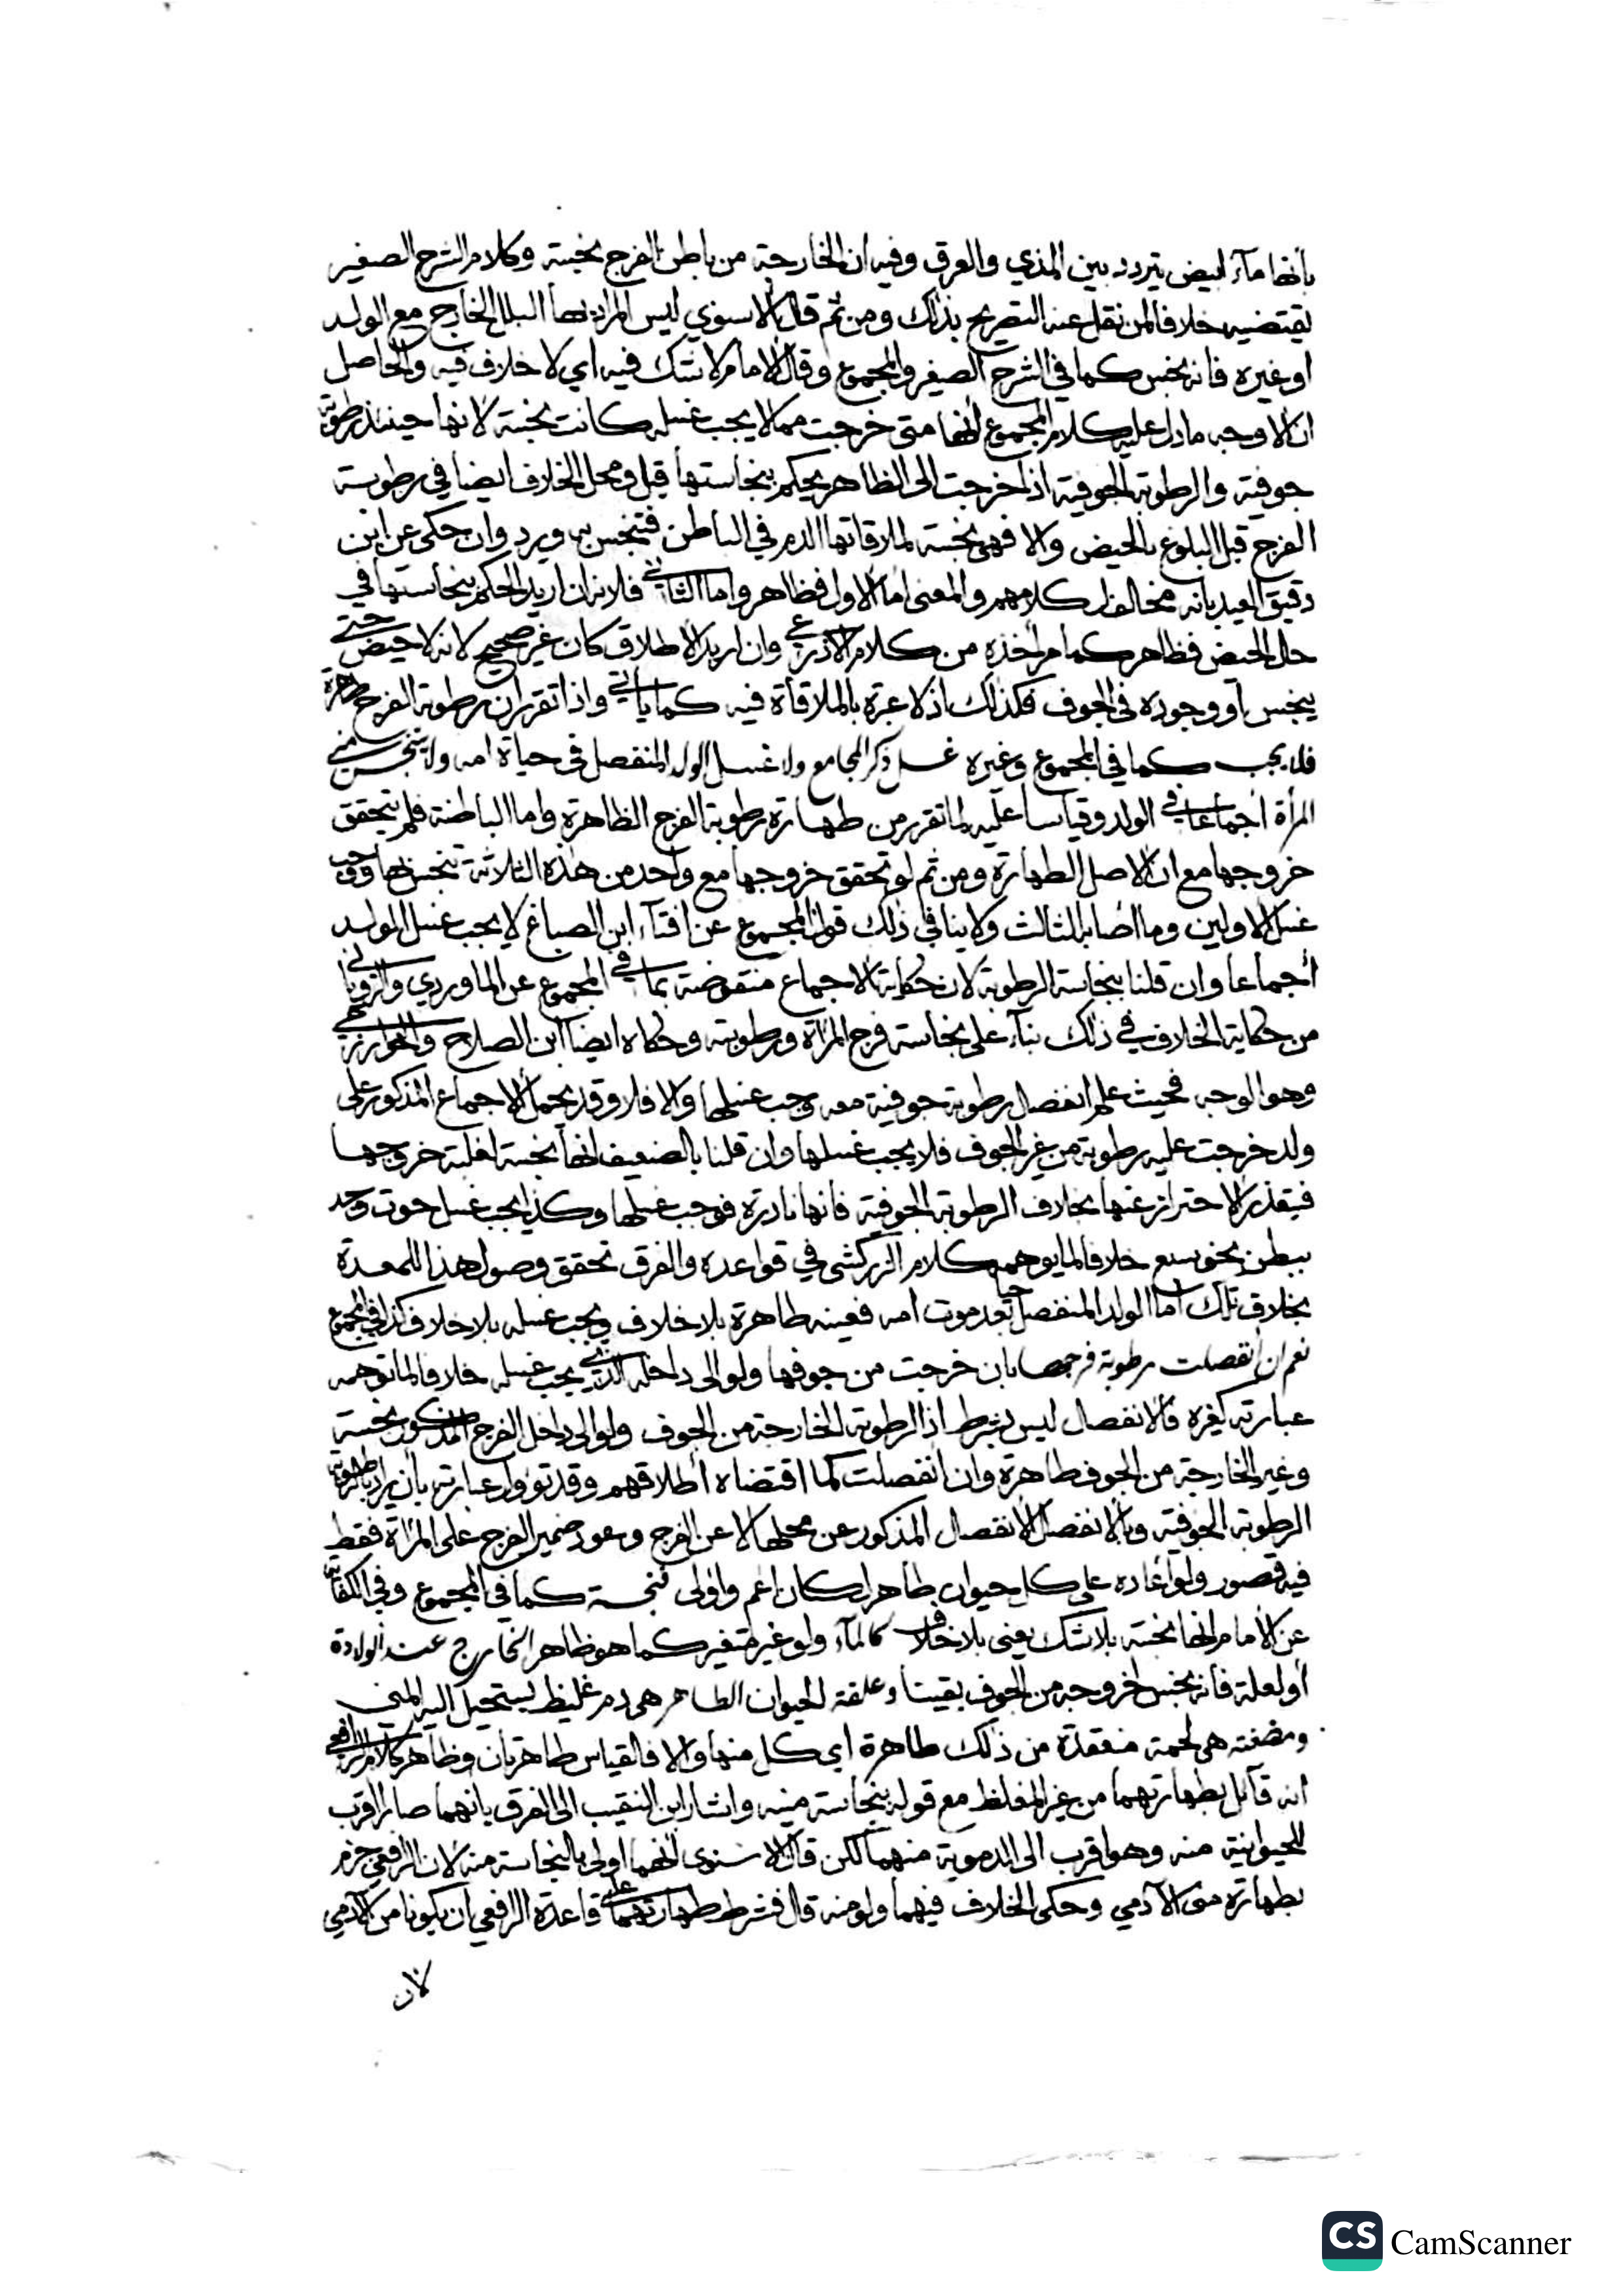 بأنها مآء ابيض يتردد بين المذي والعرق وفيه ان الخارجة من باطن الفرج نجسة وكلام الشرح الصغير
يقتضيه خلافا لمن نقل عنه التصريح بذلك ومن ثم قال الاسنوي ليس المراد بها البلل الخارج مع الولد
او غيره فانه نجس كما في الشرح الصغير والمجموع وقال الامام لا شك فيه اي لا خلاف فيه والحاصل
ان الاوجه ما دل عليه كلام المجموع انها متى خرجت مما لا يجب غسله كانت نجسة لانها حينئذ رطوبة
جوفية والرطوبة الجوفية اذا خرجت الى الظاهر يحكم بنجاستها قيل ومحل الخلاف ايضا في رطوبة
الفرج قبل البلوغ بالحيض والا فهي نجسة لملاقاتها الدم في الباطن فتنجس به ويرد وان حكى عن ابن
دقيق العيد بانه مخالف لكلامهم والمعنى اما الاول فظاهر واما الثاني فلانه ان اريد الحكم بنجاستها في
حال الحيض فظاهر كما مر اخذه من كلام الاذرعي وان اريد الاطلاق كان غير صحيح لانه لا حيض حتى
ينجس او وجوده في الجوف فكذلك اذ لا عبرة بالملاقاة فيه كما ياتي واذا تقرر ان رطوبة الفرج طاهرة
فلا يجب كما في المجموع وغيره غسل ذكر المجامع ولا غسل الولد المنفصل في حياة امه ولا يتنجس مني
المرأة اجماعا في الولد وقياسا عليه لما تقرر من طهارة رطوبة الفرج الظاهرة واما الباطنة فلم يتحقق
خروجها مع ان الاصل الطهارة ومن ثم لو تحقق خروجها مع واحد من هذه الثلاثة تنجس بها ووجب
غسل الاولين وما اصابه الثالث ولا ينافي ذلك قول المجموع عن افتآء ابن الصباغ لا يجب غسل المولد
اجماعا وان قلنا بنجاسة الرطوبة لان حكاية الاجماع منقوضة بما في المجموع عن الماوردي والروياني
من حكاية الخلاف في ذلك بنآء على نجاسة فرج المرأة ورطوبته وحكاه ايضا ابن الصلاح والخوارزمي
وهو الوجه فحيث علم انفصال رطوبة جوفية معه وجب غسلها والا فلا وقد يحمل الاجماع المذكور على
ولد خرجت عليه رطوبة من غير الجوف فلا يجب غسلها وان قلنا بالضعيف انها نجسة لغلبة خروجها
فيتعذر الاحتراز عنها بخلاف الرطوبة الجوفية فانها نادرة فوجب غسلها وكذا يجب غسل حوت وجد
ببطن نحو سبع خلافا لما يوهمه كلام الزركشي في قواعده والفرق تحقق وصول هذا للمعدة
بخلاف تلك اما الولد المنفصل حيا بعد موت امه فعينه طاهرة بلا خلاف ويجب غسله بلا خلاف كذا في المجموع
نعم ان انفصلت رطوبة فرجها بان خرجت من جوفها ولو الى داخله الذي يجب غسله خلافا لما توهمه
عبارته كغيره فالانفصال ليس بشرط اذ الرطوبة الخارجة من الجوف ولو الى داخل الفرج المذكور نجسة
وغير الخارجة من الجوف طاهرة وان انفصلت كما اقتضاه اطلاقهم وقد تؤول عبارته بأن يراد بالرطوبة
الرطوبة الجوفية وبالانفصال الانفصال المذكور عن محلها لا عن الفرج وعود ضمير الفرج على المرأة فقط
فيه قصور ولو اعاده على كل حيوان طاهر لكان اعم واولى فنجسة كما في المجموع وفي الكفاية
عن الامام انها نجسة بلا شك يعني بلا خلاف كالمآء ولو غير متغير كما هو ظاهر الخارج عند الولادة
او لعلة فانه نجس لخروجه من الجوف يقينا وعلقة الحيوان الطاهر هي دم غليظ يستحيل اليه المني
ومضغته هي لحمة منعقدة من ذلك طاهرة اي كل منها والا فالقياس طاهرتان وظاهر كلام الرافعي
انه قآئل بطهارتهما من غير المغلظ مع قوله بنجاسة منيه واشار ابن النقيب الى الفرق بانهما صارا اقرب
للحيوانية منه وهو اقرب الى الدموية منهما لكن قال الاسنوي انهما اولى بالنجاسة منه لان الرافعي جزم
بطهارة منى الآدمي وحكى الخلاف فيهما ولو منه قال فشرط طهارتهما على قاعدة الرافعي ان يكونا من الآدمي
لان
CS CamScanner